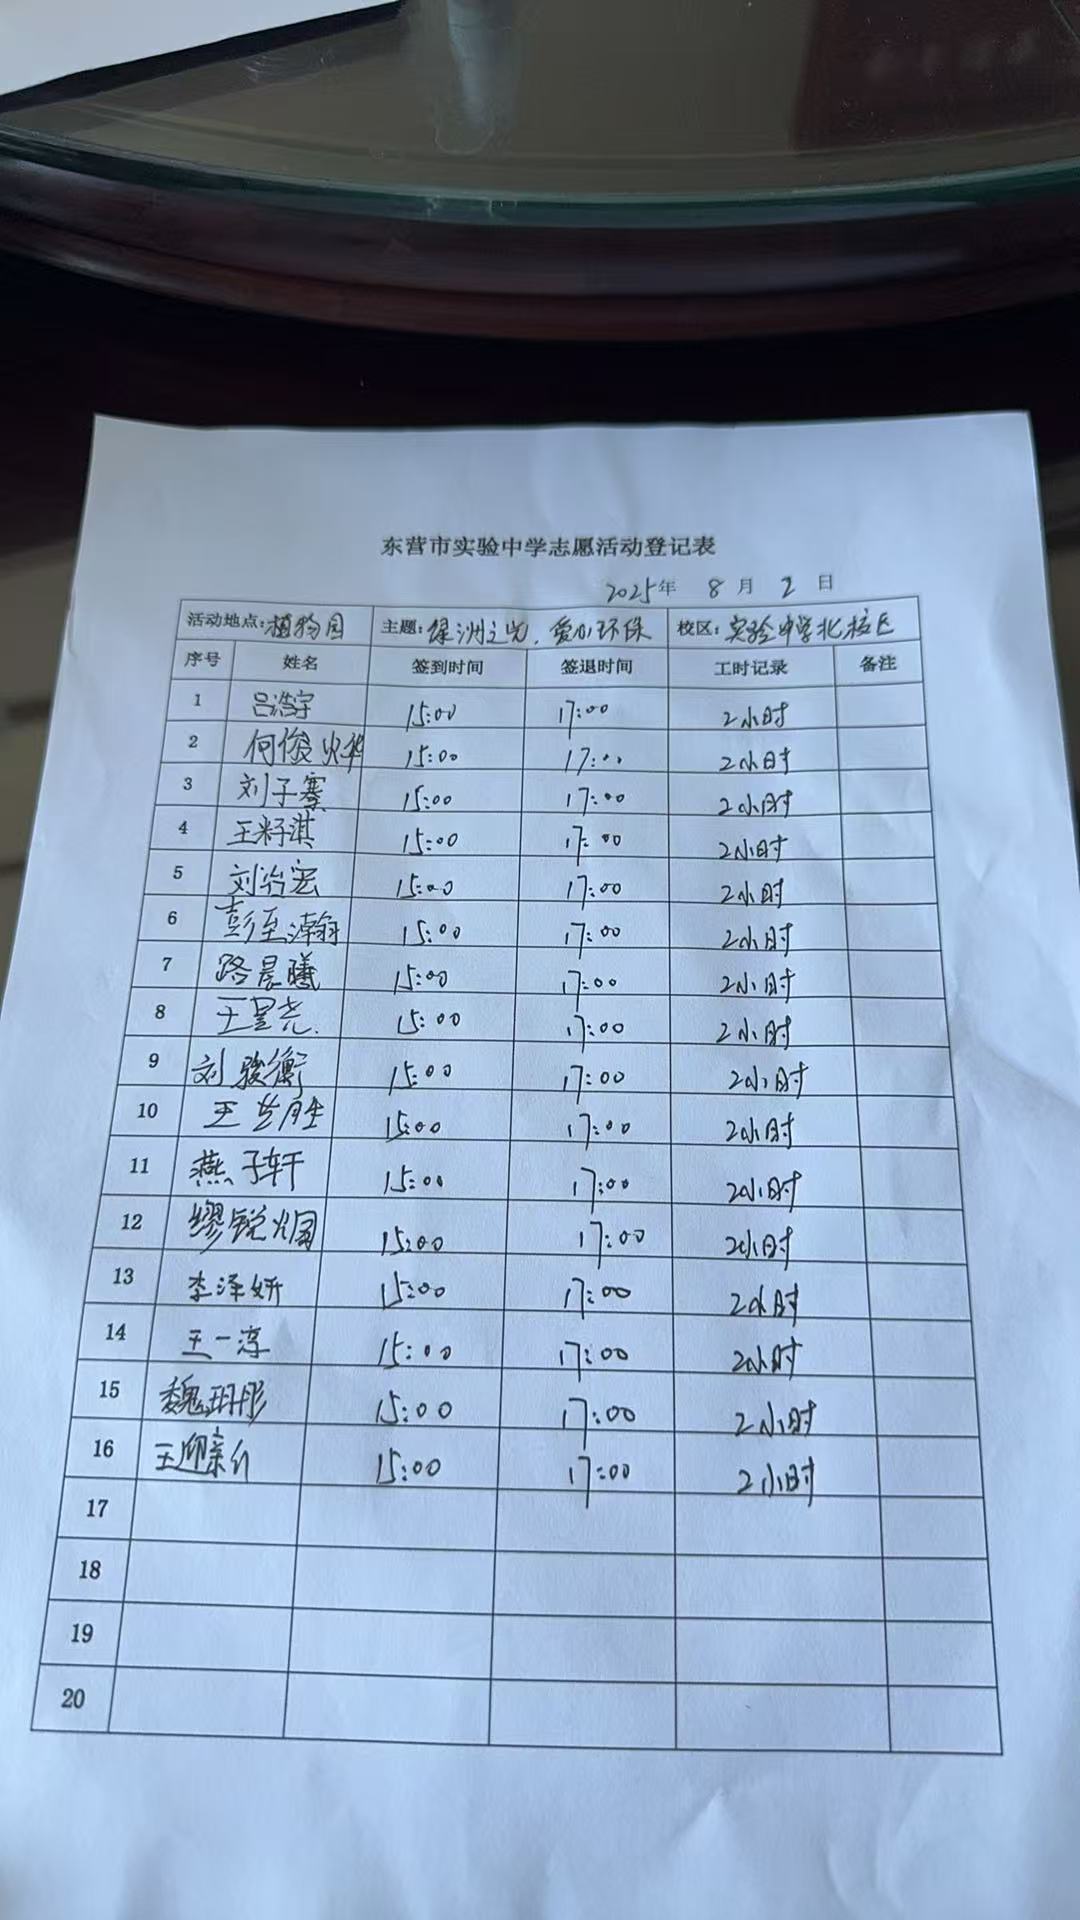 东营市实验中学志愿活动登记表
2025年 8 月 2 日
活动地点:植物园 主题:绿洲之光,爱心环保 校区:实验中学北校区
序号 姓名 签到时间 签退时间 工时记录 备注
1 吕浩宇 15:00 17:00 2小时
2 何俊烨 15:00 17:00 2小时
3 刘子骞 15:00 17:00 2小时
4 王籽淇 15:00 17:00 2小时
5 刘治宏 15:00 17:00 2小时
6 彭至瀚 15:00 17:00 2小时
7 路晨曦 15:00 17:00 2小时
8 王昱尧. 15:00 17:00 2小时
9 刘骏衡 15:00 17:00 2小时
10 王艺胜 15:00 17:00 2小时
11 燕子轩 15:00 17:00 2小时
12 缪锐 15:00 17:00 2小时
13 李泽妍 15:00 17:00 2小时
14 王一淳 15:00 17:00 2小时
15 魏玥彤 15:00 17:00 2小时
16 王迎 15:00 17:00 2小时
17
18
19
20